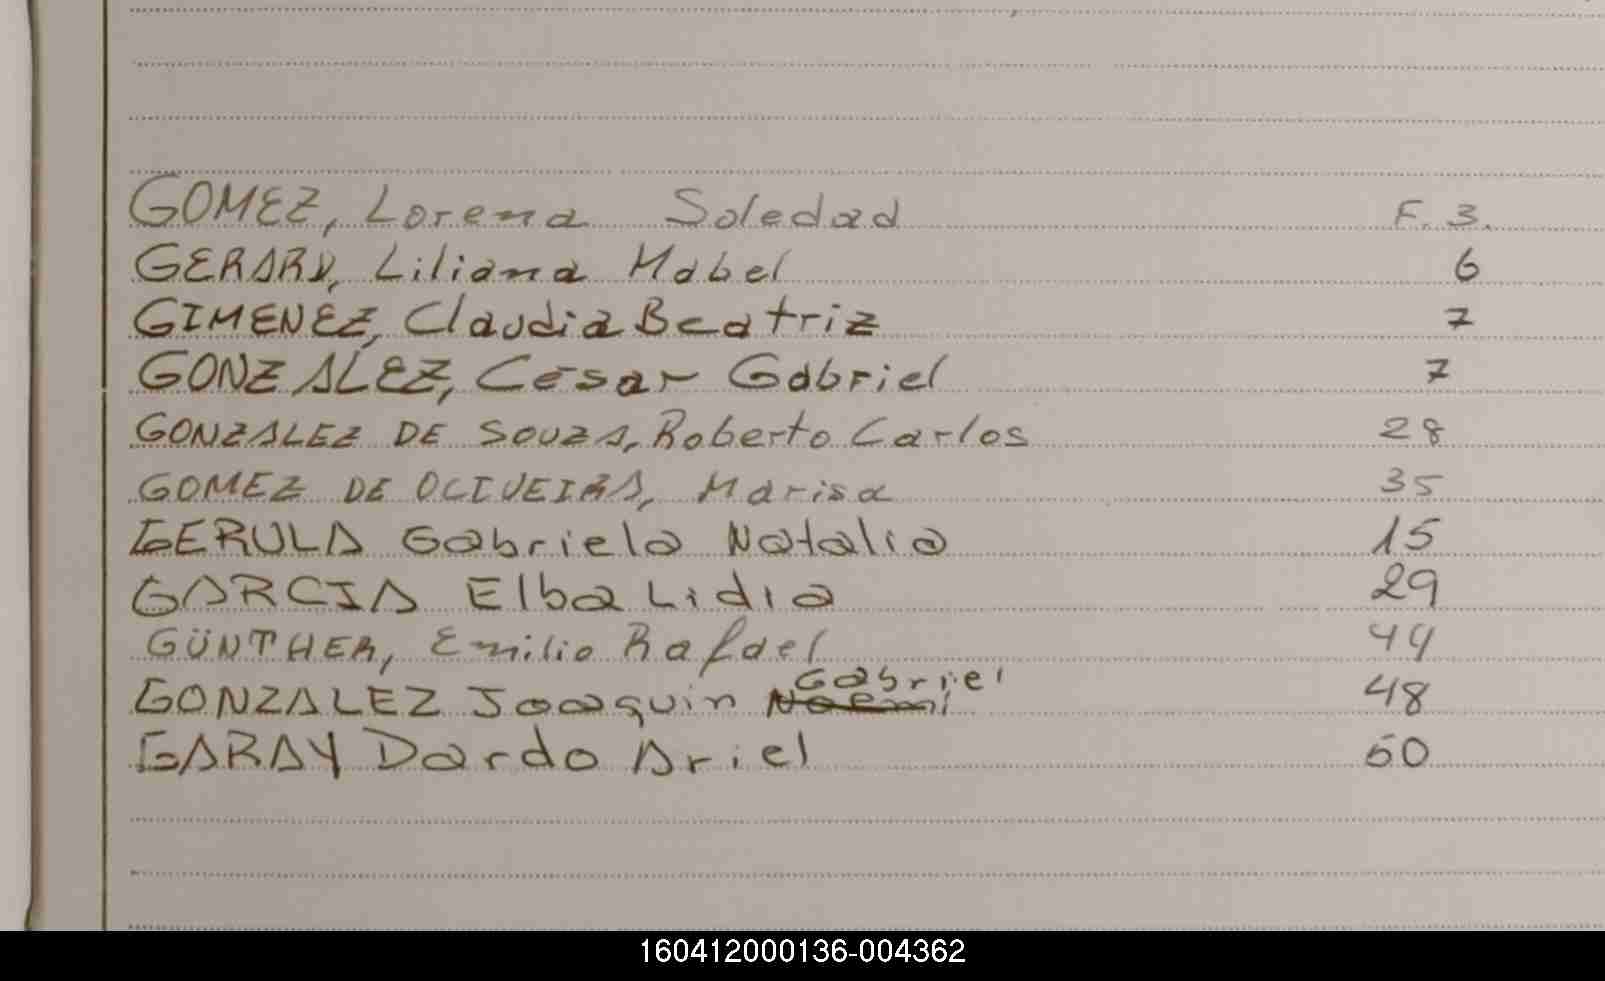 GOMEZ, Lorena Soledad F. 3.
GERARD, Liliana Mabel 6
GIMENEZ, Claudia Beatriz 7
GONZALEZ, Cesar Gabriel 7
GONZALEZ DE SOUZA, Roberto Carlos 28
GOMEZ DE OLIVEIRA, Marisa 35
GERULA Gabriela Natalia 15
GARCIA Elba Lidia 29
GÜNTHER, Emilio Rafael 44
GONZALEZ Joaquin Noemi Gabriel 48
GARAY Dardo Ariel 50
160412000136-004362